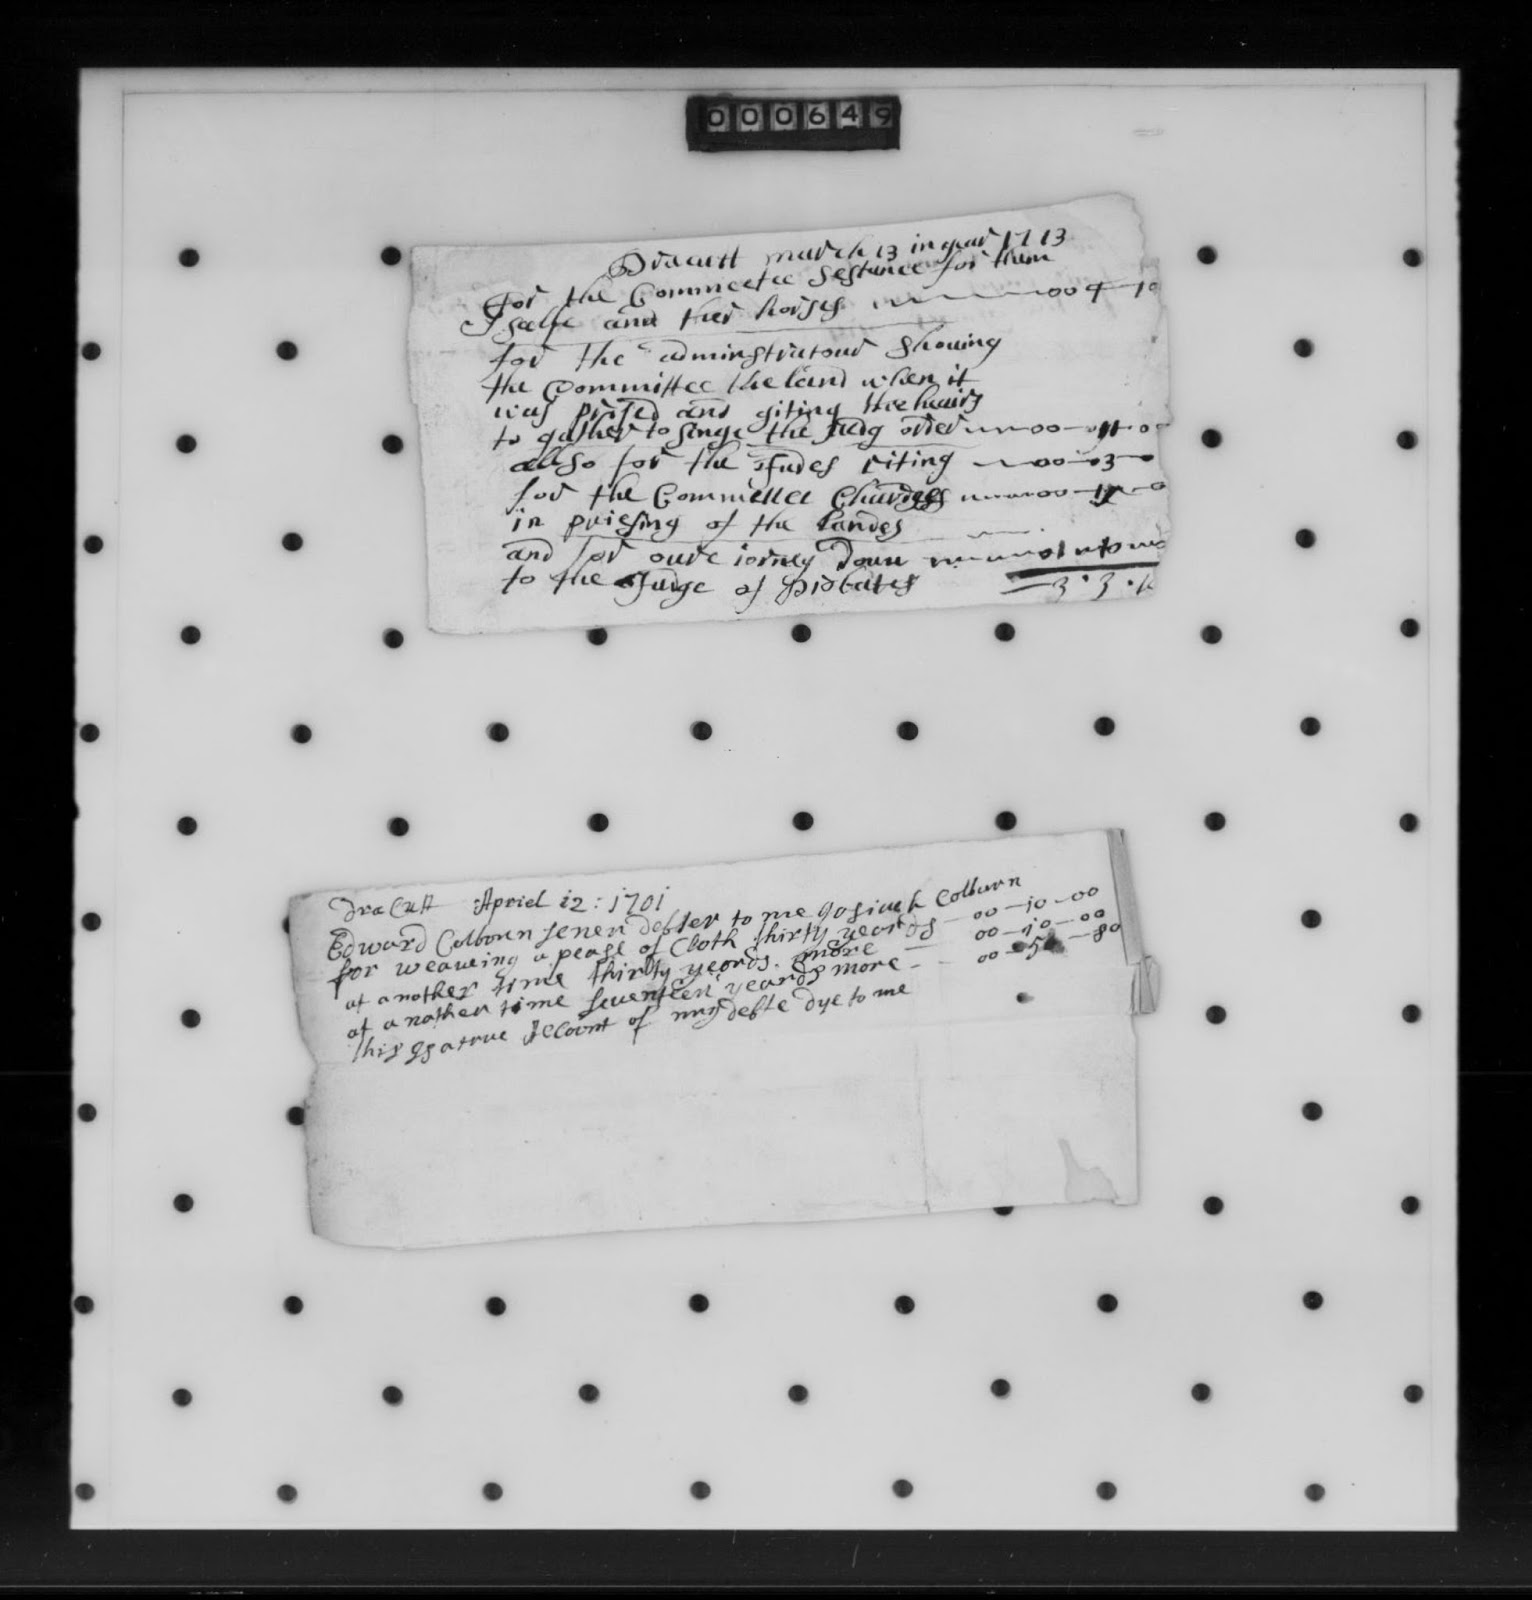 000649
Dracutt march 13 in year 1713
for the Commeetee Sestance for them
Selfe and ther horses 00 4 10
for the adminstratour Showing
the Committee the land when it
was prised and giting the heairs
to gather to singe the Judg order 00
allso for the Judes riting 00 3
for the Committee Chardges 00
in priesing of the Landes
and for oure iorney Down
to the Judge of probates 3 . 3 .
Dracutt Apriel 12 : 1701
Edward Colborn sener debter to me Josiah Colburn
for weaueing a pease of Cloth thirty yeards 00 — 10 — 00
at another time thirty yeards more 00 — 10 — 00
at another time seventeen yeards more 00 — 5
this is a true Account of my debte dye to me